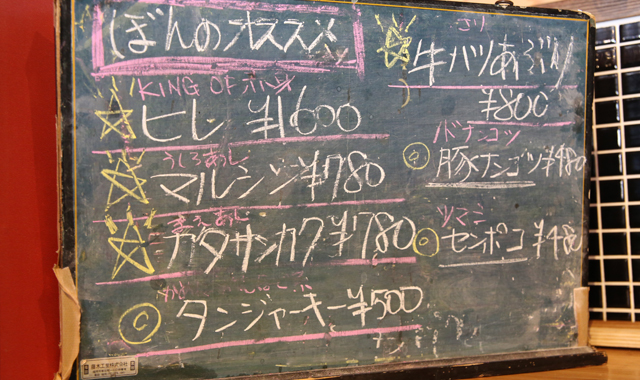 ぼんのオススメ
KING OF ホルメ
ヒレ ¥1600
うしろあし
マルシン ¥780
まえあし
ウタサンカク ¥780
C タンジャーキー ¥500
コリ
牛ハツあぶり
¥800
ノドナンコツ
豚ナンコツ ¥480
ツマミ
センポコ ¥480